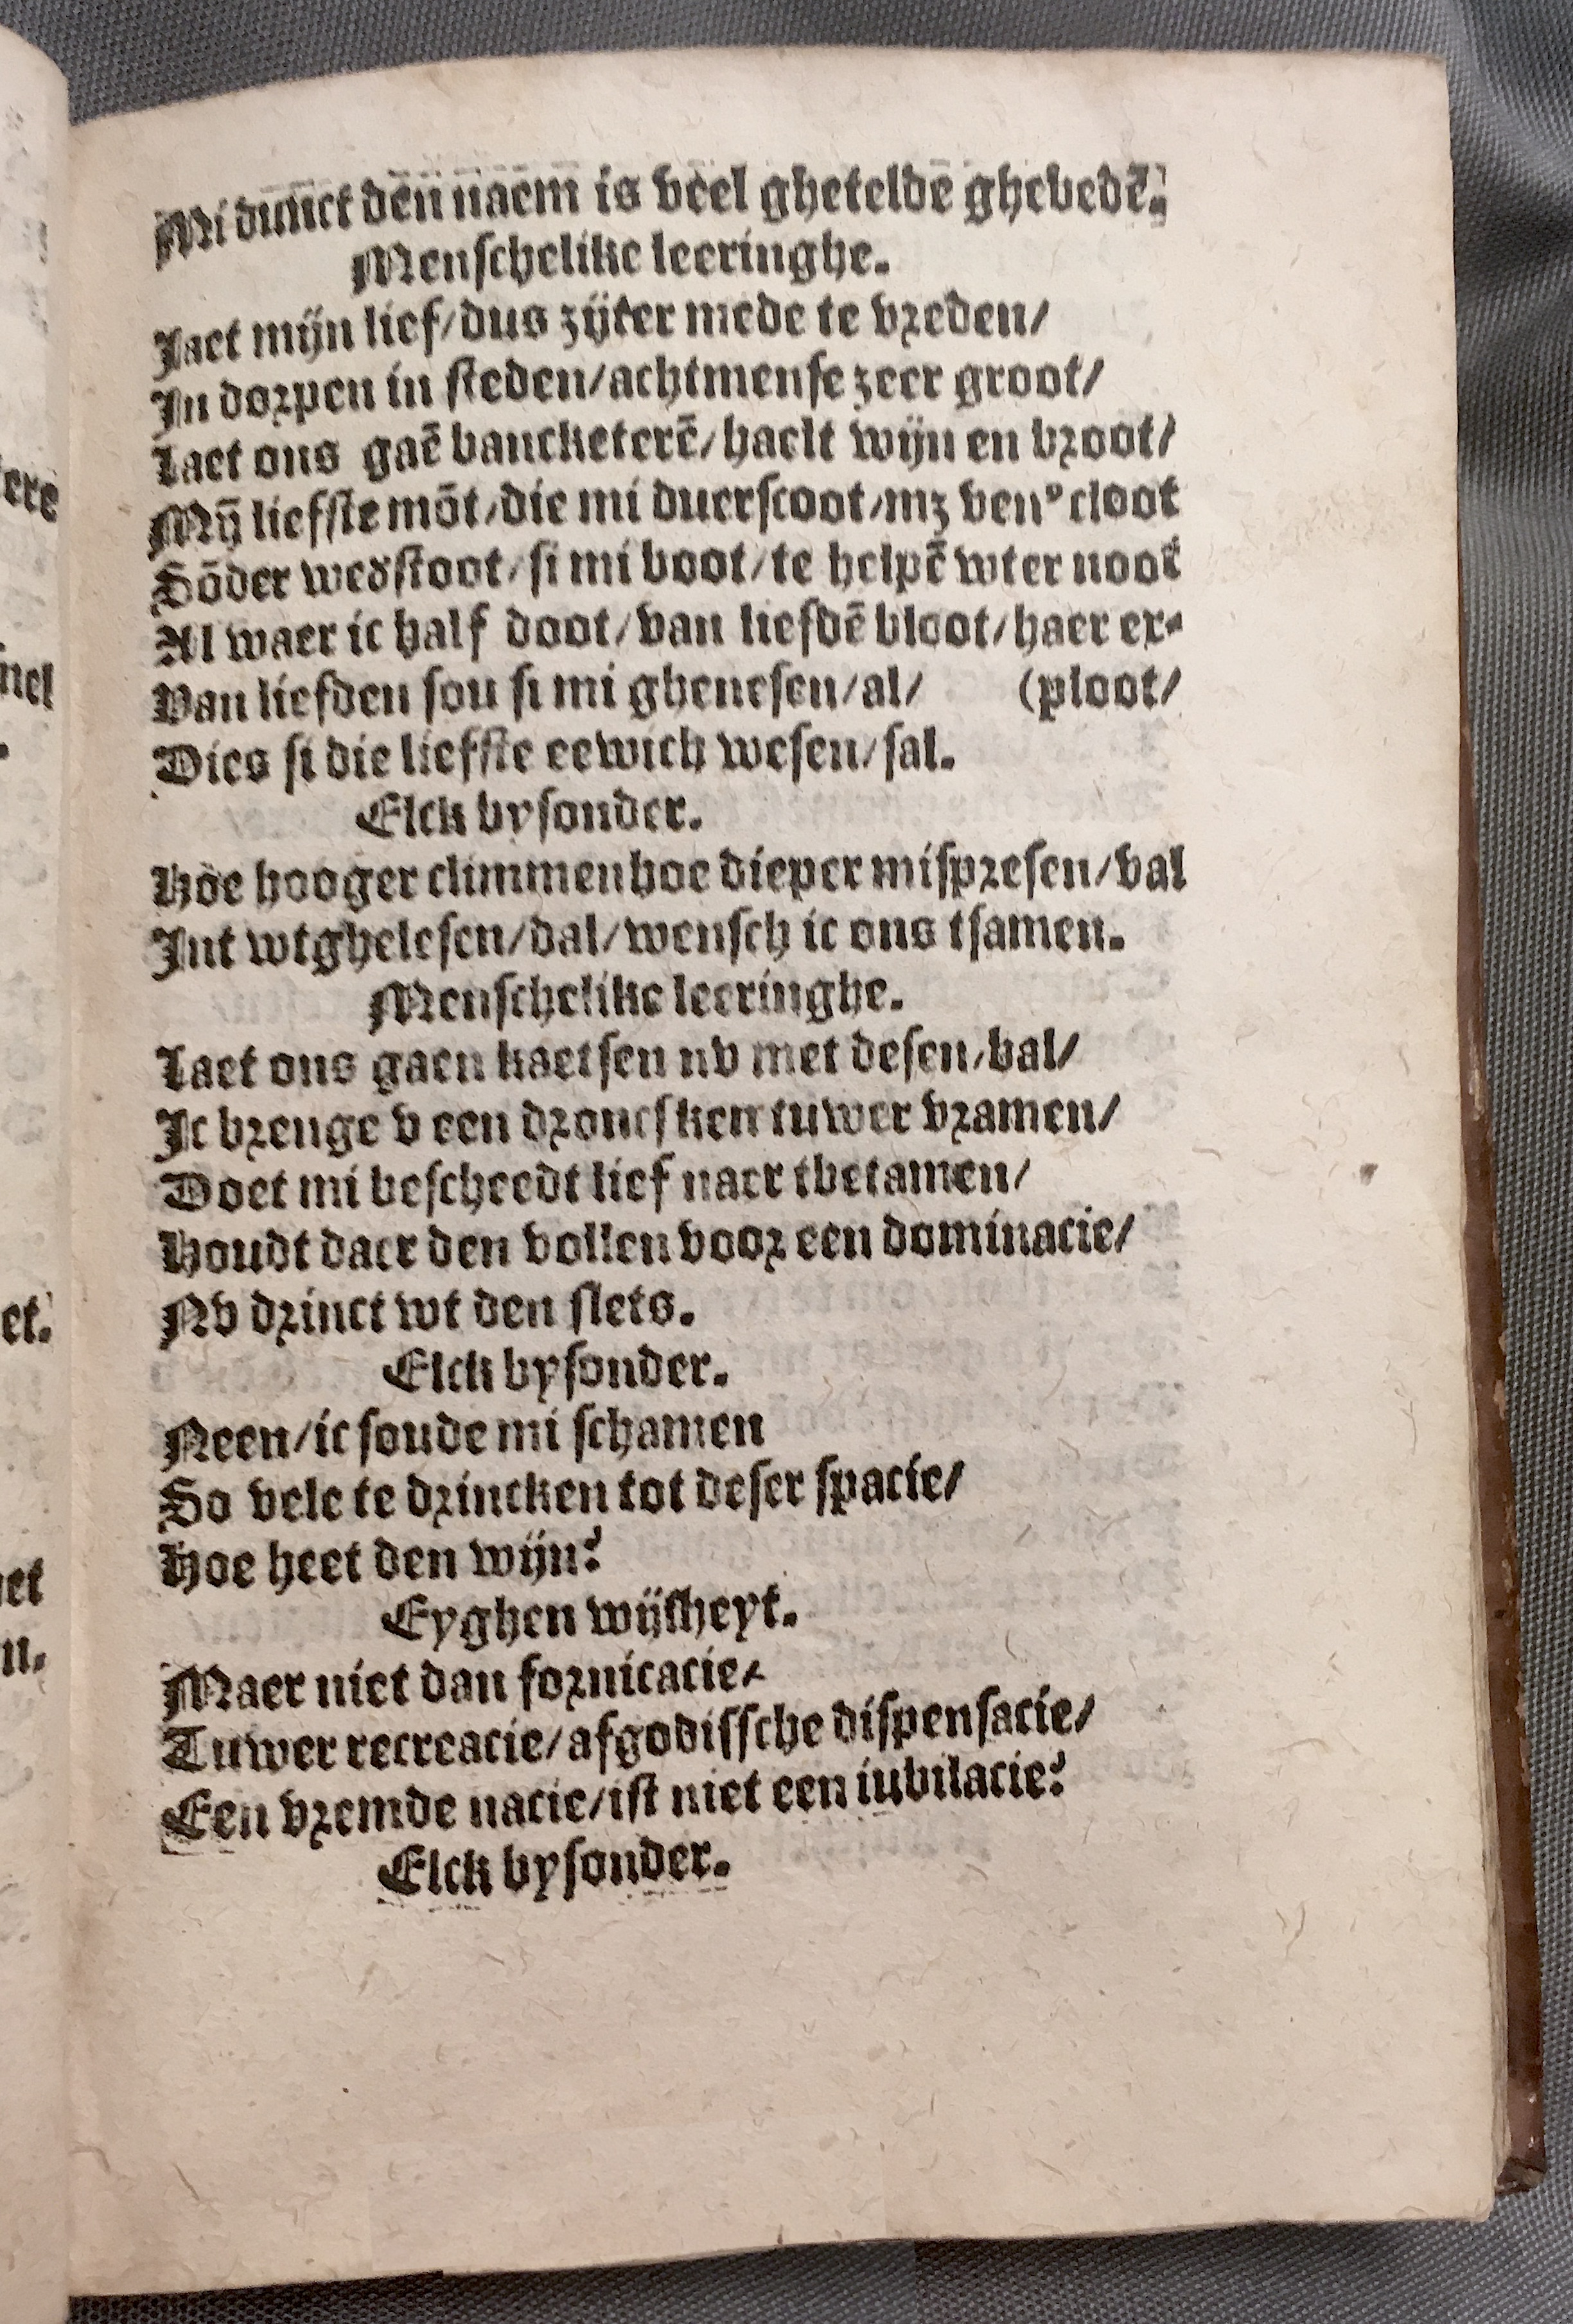 Mi dunct den naem is veel ghetelde̅ ghebede̅.
Menschelike leeringhe.
Jaet mijn lief/dus zijter mede te vreden/
In dorpen in steden/achtmense zeer groot/
Laet ons gae̅ banckctere̅/haelt wijn en broot/
Mij̅ liefste mo̅t/die mi duerscoot/mz venꝰ cloot
So̅der wedstoot/si mi boot/te helpe̅ wter noot
Al waer ic half doot/van liefde̅ bloot/haer er-
Van liefden sou si mi ghenesen/al/ (ploot/
Dies si die liefste eewich wesen/sal.
Elck bysonder.
Hoe hooger climmen hoe dieper mispresen/val
Int wtghelesen/dal/wensch ic ons tsamen.
Menschelike leeringhe.
Laet ons gaen kaetsen nv met desen/bal/
Ic brenge v een droncsken tuwer vramen/
Doet mi bescheedt lief naer tbetamen/
Houdt daer den vollen voor een dominacie/
Nv drinct wt den slets.
Elck bysonder.
Neen/ic soude mi schamen
So vele te drincken tot deser spacie/
Hoe heet den wijn?
Eyghen wijsheyt.
Maer niet dan fornicacie/
Tuwer recreacie/afgodissche dispensacie/
Een vremde nacie/ist niet een iubilacie?
Elck bysonder.